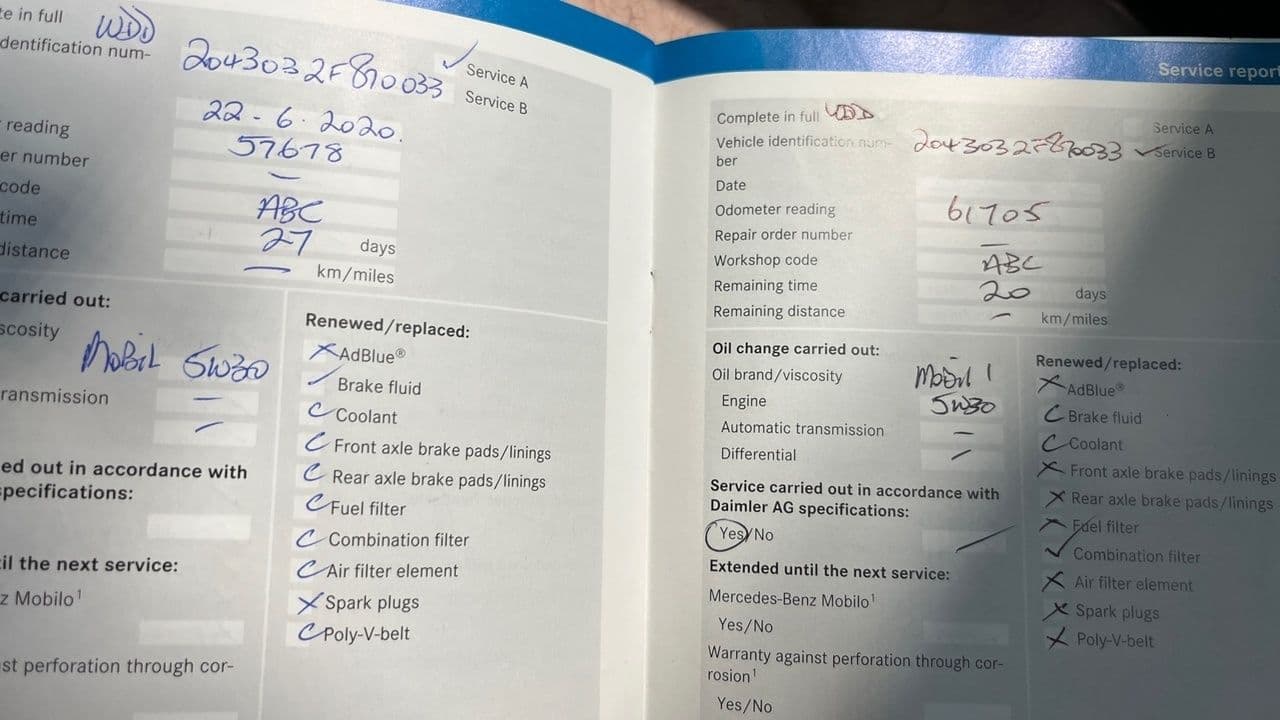 te in full WDD
dentification num- 2043032F870033
Service A
Service B
22-6.2020.
reading 57678
er number —
code ABC
time 27 days
distance — km/miles
carried out:
scosity MOBIL 5W30
ransmission —
—
ed out in accordance with
specifications:
il the next service:
z Mobilo¹
st perforation through cor-
Renewed/replaced:
AdBlue®
Brake fluid
Coolant
Front axle brake pads/linings
Rear axle brake pads/linings
Fuel filter
Combination filter
Air filter element
Spark plugs
Poly-V-belt
Service report
Complete in full WDD
Vehicle identification num- 2043032F870033
ber
Service A
Service B
Date
Odometer reading 61705
Repair order number —
Workshop code ABC
Remaining time 20 days
Remaining distance — km/miles
Oil change carried out:
Oil brand/viscosity Mobil 1
Engine 5W30
Automatic transmission —
Differential —
Service carried out in accordance with
Daimler AG specifications:
Yes/No
Extended until the next service:
Mercedes-Benz Mobilo¹
Yes/No
Warranty against perforation through cor-
rosion¹
Yes/No
Renewed/replaced:
AdBlue®
Brake fluid
Coolant
Front axle brake pads/linings
Rear axle brake pads/linings
Fuel filter
Combination filter
Air filter element
Spark plugs
Poly-V-belt